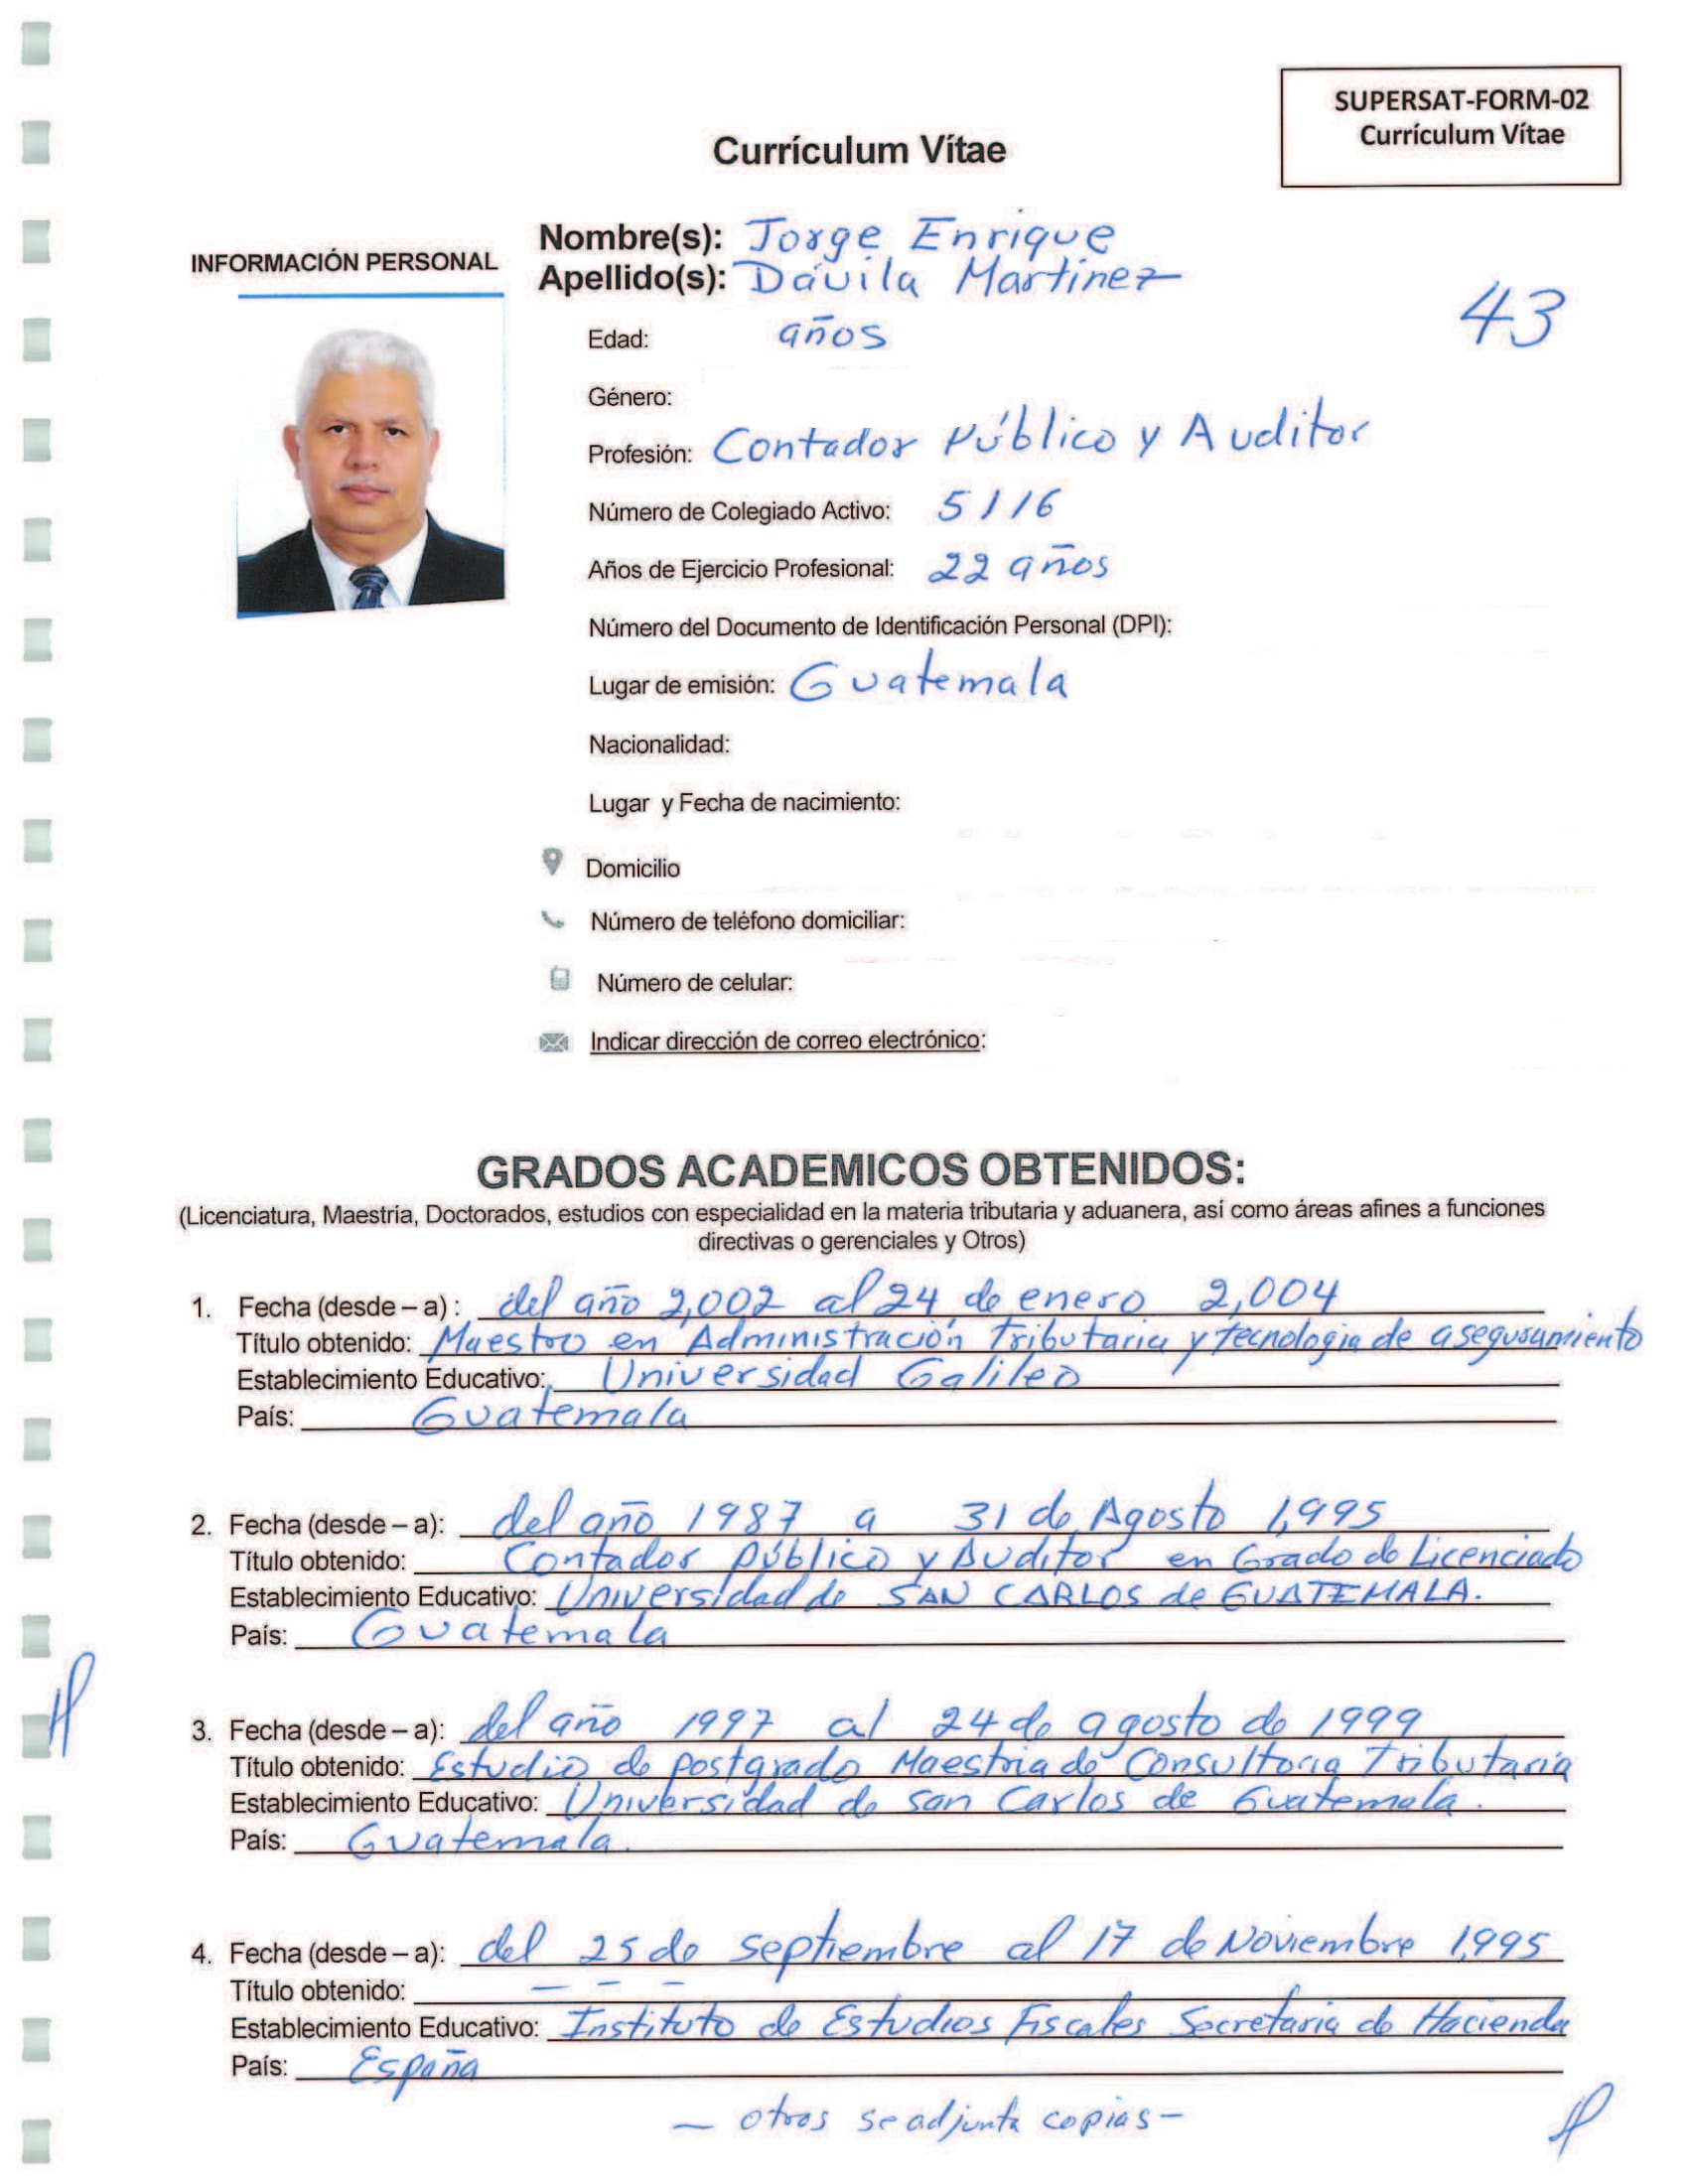 SUPERSAT-FORM-02
Currículum Vítae
Currículum Vítae
INFORMACIÓN PERSONAL
Nombre(s): Jorge Enrique
Apellido(s): Dávila Martinez
43
Edad: años
Género:
Profesión: Contador Público y Auditor
Número de Colegiado Activo: 5116
Años de Ejercicio Profesional: 22 años
Número del Documento de Identificación Personal (DPI):
Lugar de emisión: Guatemala
Nacionalidad:
Lugar y Fecha de nacimiento:
Domicilio
Número de teléfono domiciliar:
Número de celular:
Indicar dirección de correo electrónico:
GRADOS ACADEMICOS OBTENIDOS:
(Licenciatura, Maestria, Doctorados, estudios con especialidad en la materia tributaria y aduanera, así como áreas afines a funciones
directivas o gerenciales y Otros)
1. Fecha (desde – a) : del año 2,002 al 24 de enero 2,004
Título obtenido: Maestro en Administración Tributaria y tecnologia de asegusamiento
Establecimiento Educativo: Universidad Galileo
País: Guatemala
2. Fecha (desde – a): del año 1987 a 31 de Agosto 1,995
Título obtenido: Contador público y Auditor en Grado de Licenciado
Establecimiento Educativo: Universidad de SAN CARLOS de GUATEMALA.
País: Guatemala
3. Fecha (desde – a): del año 1997 al 24 de agosto de 1999
Título obtenido: Estudio de postgrado Maestria de Consultoria Tributaria
Establecimiento Educativo: Universidad de san Carlos de Guatemala.
País: Guatemala.
4. Fecha (desde – a): del 25 de septiembre al 17 de Noviembre 1,995
Título obtenido: – – –
Establecimiento Educativo: Instituto de Estudios Fiscales Secretaria de Hacienda
País: España
– otros se adjunta copias –